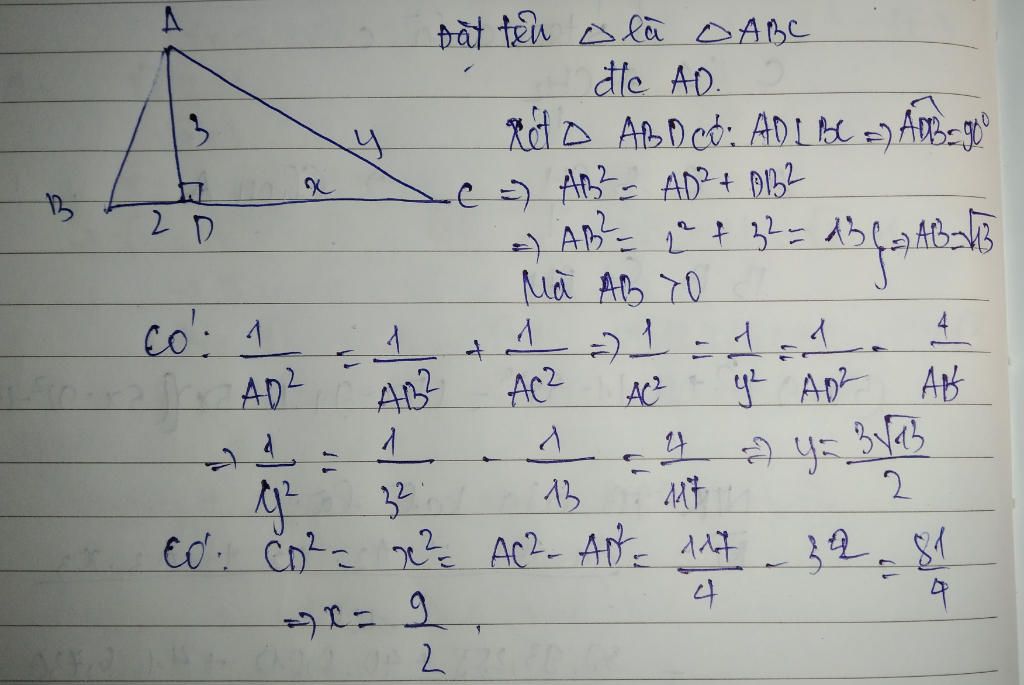 A
3
y
x
B
2 D
C
Đặt tên △ là △ABC
đ/c AD.
Xét △ ABD có: AD ⊥ BC => \widehat{ADB} = 90°
=> AB² = AD² + DB²
=> AB² = 2² + 3² = 13 } => AB = √13
Mà AB > 0
Có: 1/AD² = 1/AB² + 1/AC² => 1/AC² = 1/y² = 1/AD² - 1/AB²
=> 1/y² = 1/3² - 1/13 = 4/117 => y = 3√13/2
Có: CD² = x² = AC² - AD² = 117/4 - 3² = 81/4
=> x = 9/2.